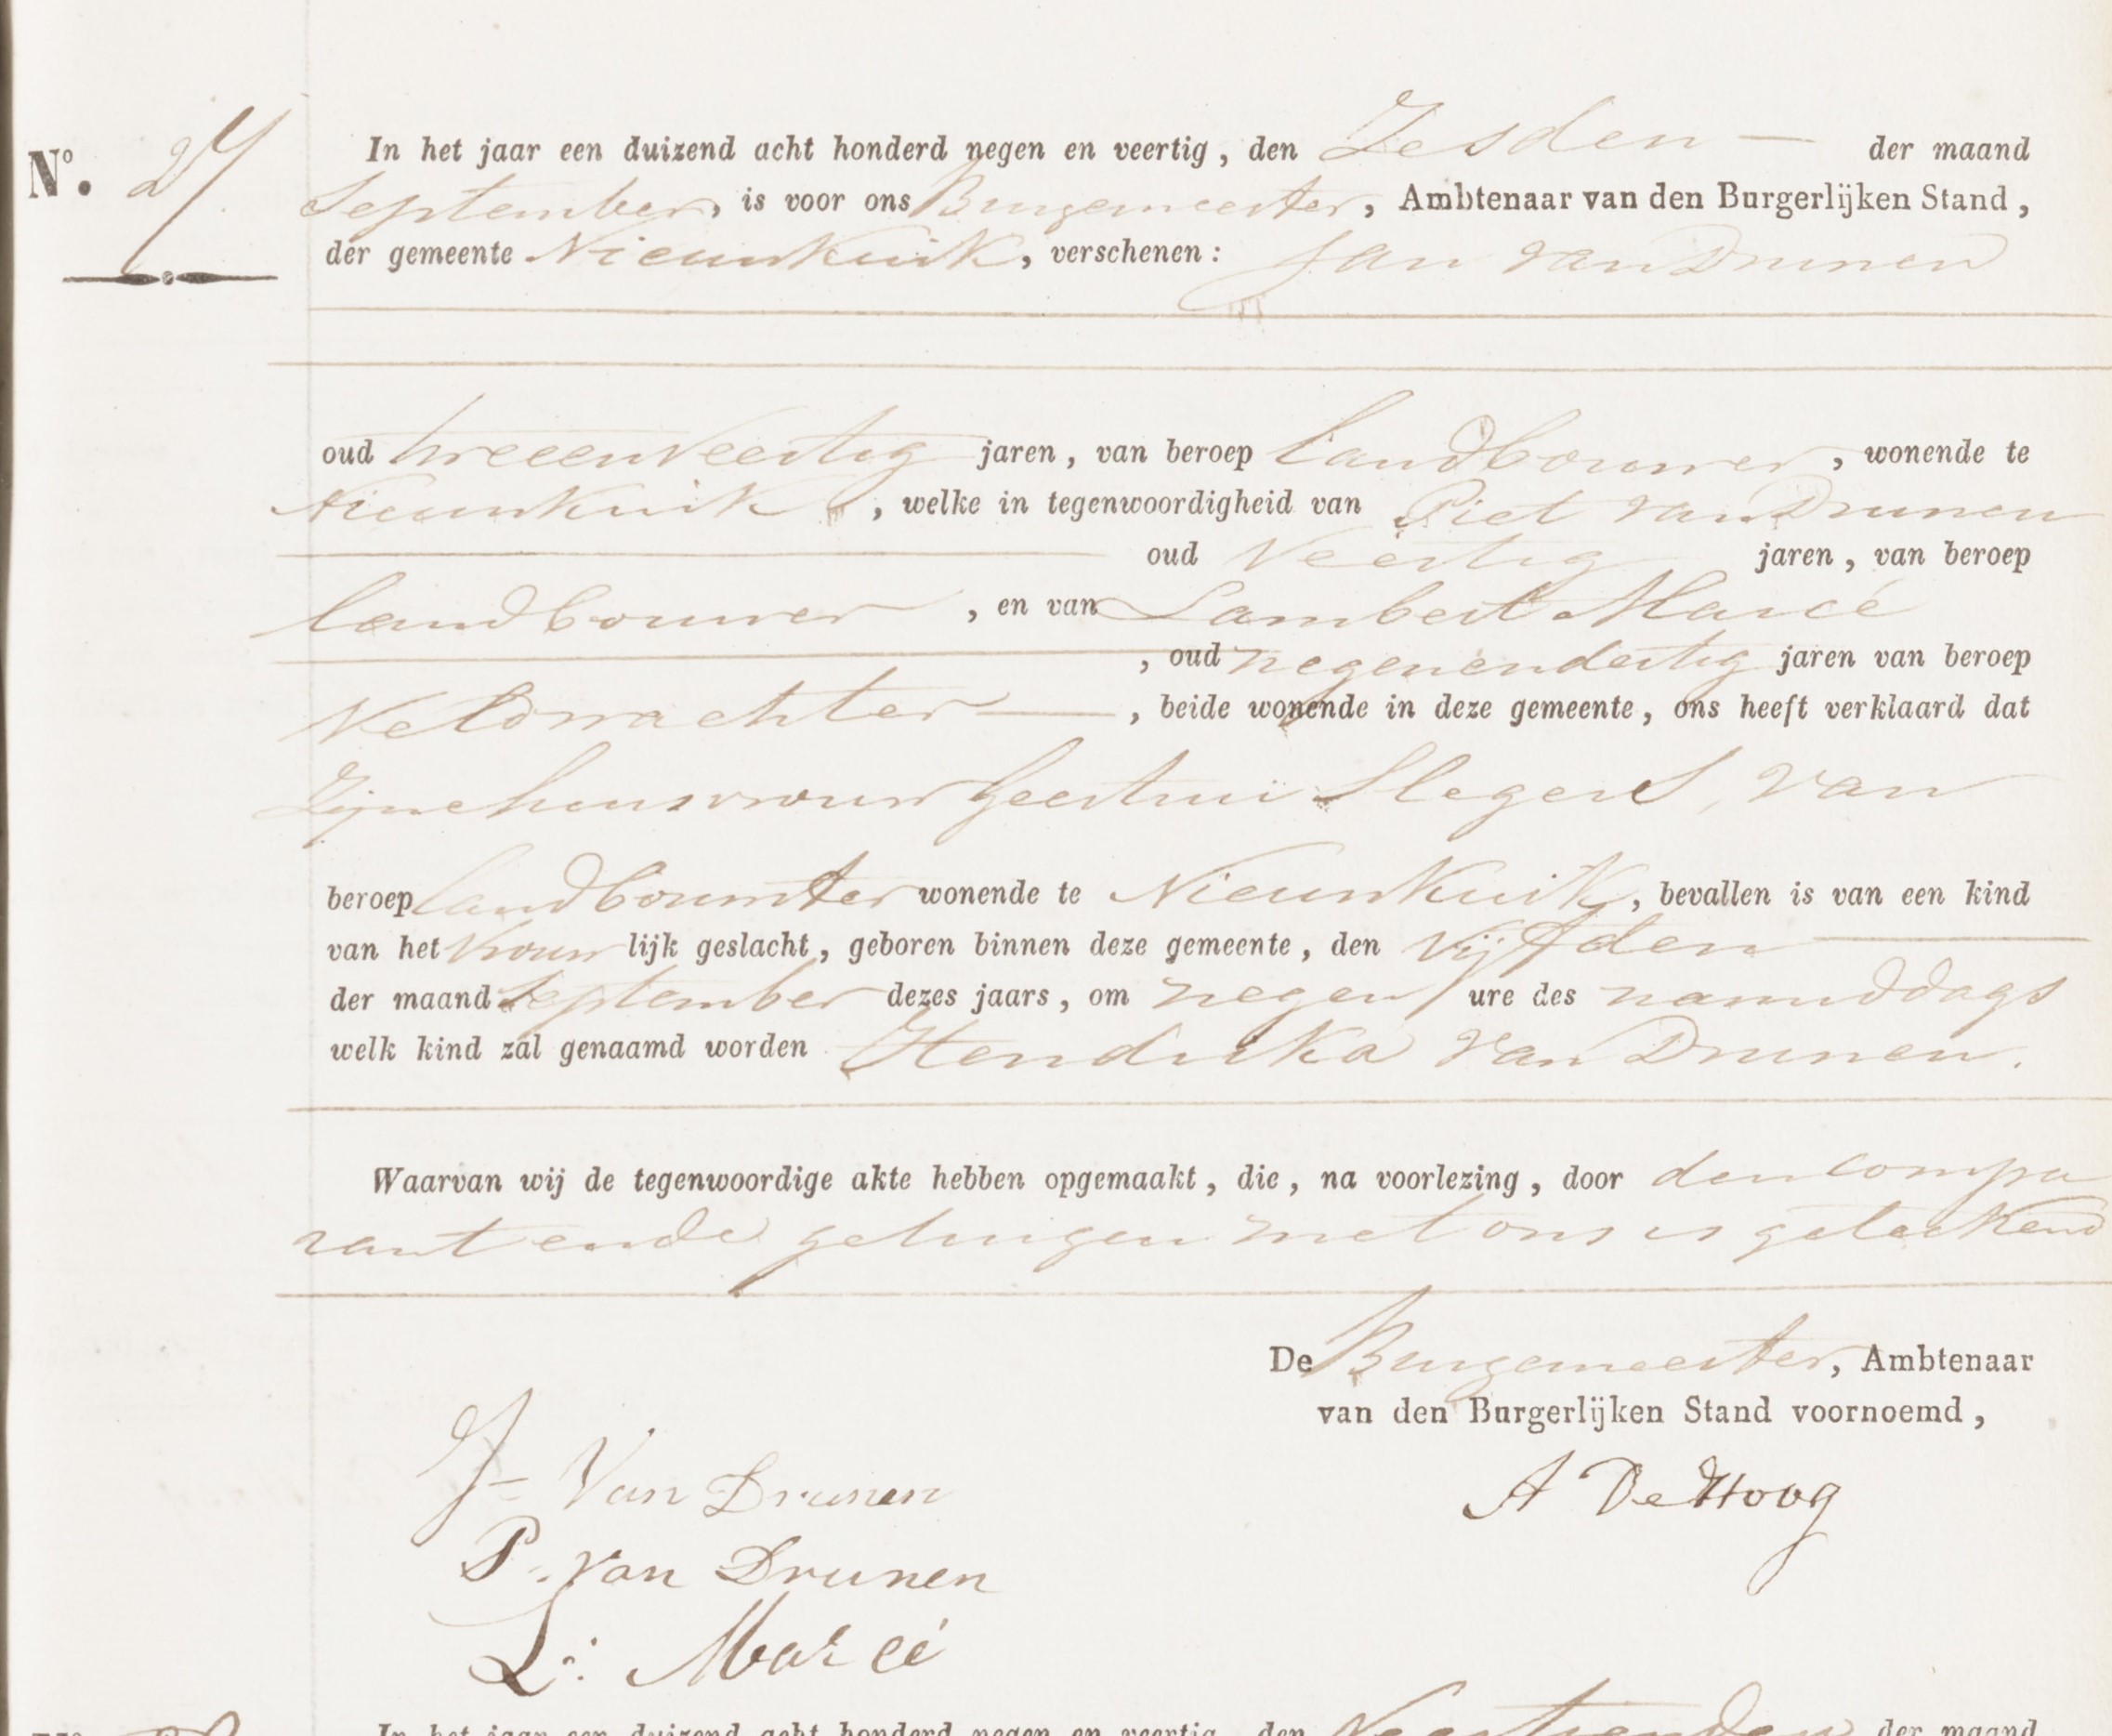 No. 27
In het jaar een duizend acht honderd negen en veertig, den Zesden — der maand
September, is voor ons Burgemeester, Ambtenaar van den Burgerlijken Stand,
der gemeente Nieuwkuik, verschenen: Jan van Drunen
oud tweeenveertig jaren, van beroep landbouwer, wonende te
Nieuwkuik, welke in tegenwoordigheid van Piet van Drunen
oud Veertig jaren, van beroep
landbouwer, en van Lambert Marcé
, oud negenendertig jaren van beroep
Veldwachter —, beide wonende in deze gemeente, ons heeft verklaard dat
Zijne huisvrouw Geertrui Slegers, van
beroep landbouwster wonende te Nieuwkuik, bevallen is van een kind
van het Vrouw lijk geslacht, geboren binnen deze gemeente, den Vijfden
der maand September dezes jaars, om negen ure des namiddags
welk kind zal genaamd worden Hendrika van Drunen.
Waarvan wij de tegenwoordige akte hebben opgemaakt, die, na voorlezing, door den compa
rant en de getuigen met ons is geteekend
De Burgemeester, Ambtenaar
van den Burgerlijken Stand voornoemd,
J Van Drunen
A De Hoog
P. van Drunen
L: Marcé
In het jaar een duizend acht honderd negen en veertig, den Veertienden der maand